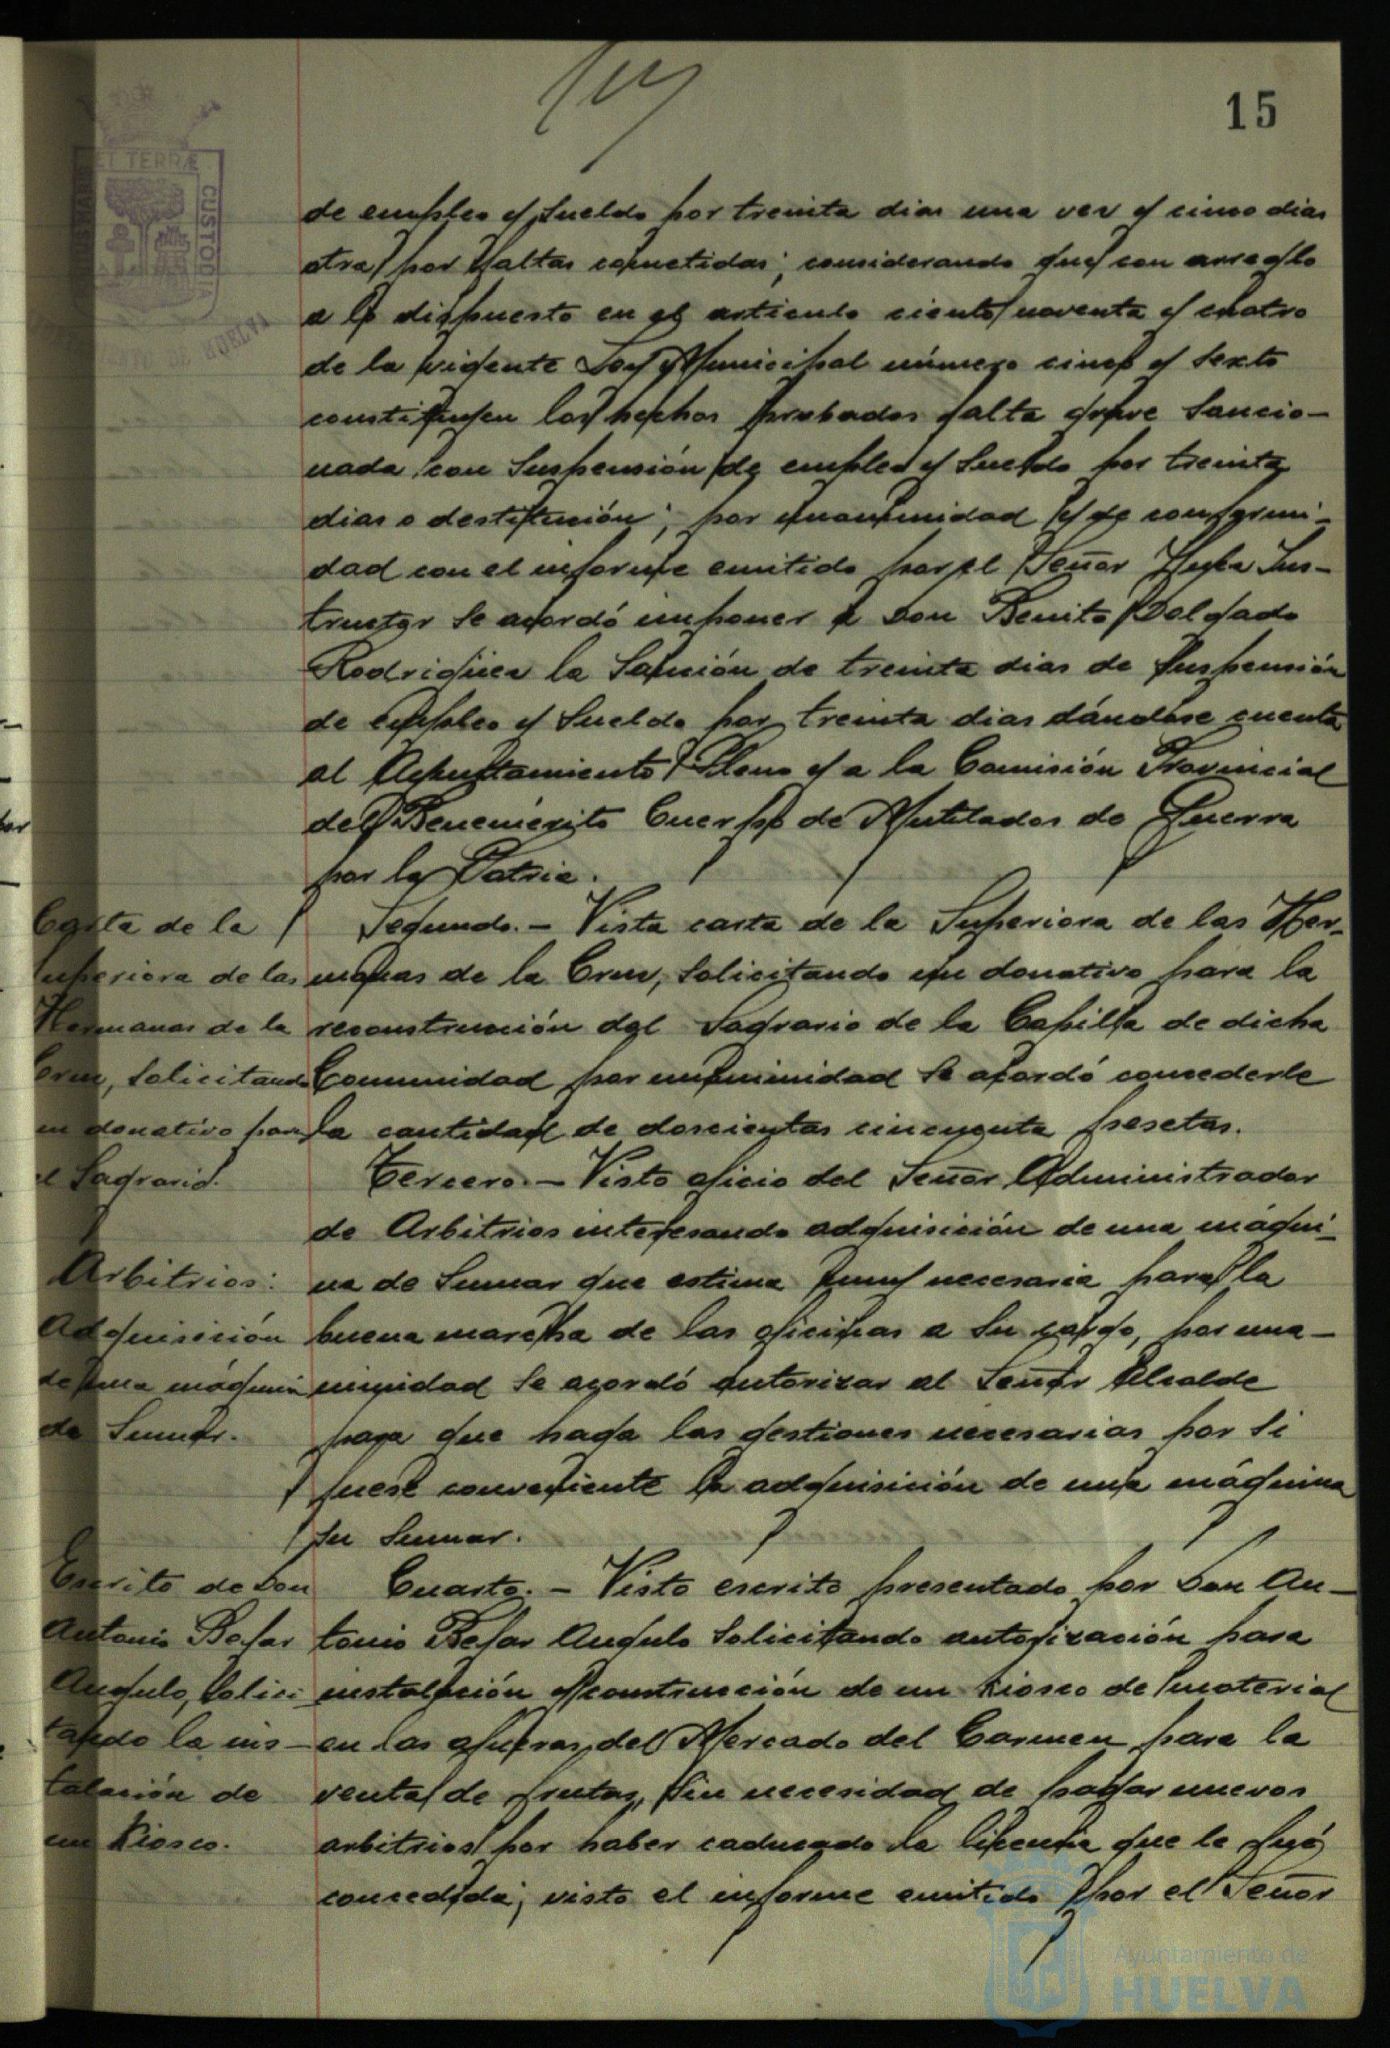 15
de empleo y sueldo por treinta dias una vez y cinco dias
otra por faltas cometidas; considerando que con arreglo
a lo dispuesto en el articulo ciento noventa y cuatro
de la vigente Ley Municipal número cinco y sexto
constituyen los hechos probados falta grave sancio-
nada con suspensión de empleo y sueldo por treinta
dias o destitución; por unanimidad y de conformi-
dad con el informe emitido por el Señor Juez Ins-
tructor se acordó imponer a Don Benito Delgado
Rodriguez la sanción de treinta dias de suspensión
de empleo y sueldo por treinta dias dándose cuenta
al Ayuntamiento Pleno y a la Comisión Provincial
del Benemérito Cuerpo de Mutilados de Guerra
por la Patria.
Carta de la
Superiora de las
Hermanas de la
Cruz, solicitando
un donativo para
el Sagrario.
Segundo.- Vista carta de la Superiora de las Her-
manas de la Cruz, solicitando un donativo para la
reconstrucción del Sagrario de la Capilla de dicha
Comunidad por unanimidad se acordó concederle
la cantidad de doscientas cincuenta pesetas.
Arbitrios:
Adquisición
de una máquina
de Sumar.
Tercero.- Visto oficio del Señor Administrador
de Arbitrios interesando adquisición de una máqui-
na de sumar que estima muy necesaria para la
buena marcha de las oficinas a su cargo, por una-
nimidad se acordó autorizar al Señor Alcalde
para que haga las gestiones necesarias por si
fuese conveniente la adquisición de una máquina
su sumar.
Escrito de Don
Antonio Befar
Angulo, solici-
tando la ins-
talación de
un Kiosco.
Cuarto.- Visto escrito presentado por Don An-
tonio Befar Angulo solicitando autorización para
instalación y construcción de un kiosco de material
en las afueras del Mercado del Carmen para la
venta de frutas, sin necesidad de pagar nuevos
arbitrios por haber caducado la licencia que le fué
concedida; visto el informe emitido por el Señor
ET TERRÆ CUSTODIA
DE HUELVA
Ayuntamiento de
HUELVA